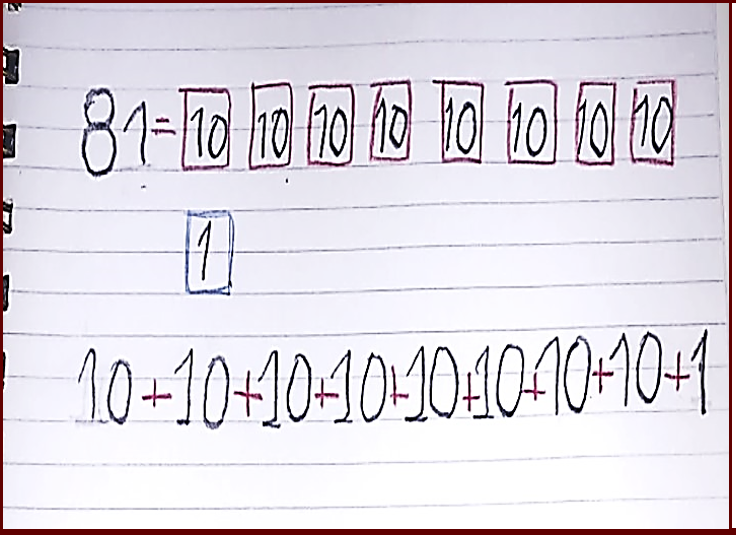 81= 10 10 10 10 10 10 10 10
1
10+10+10+10+10+10+10+10+1